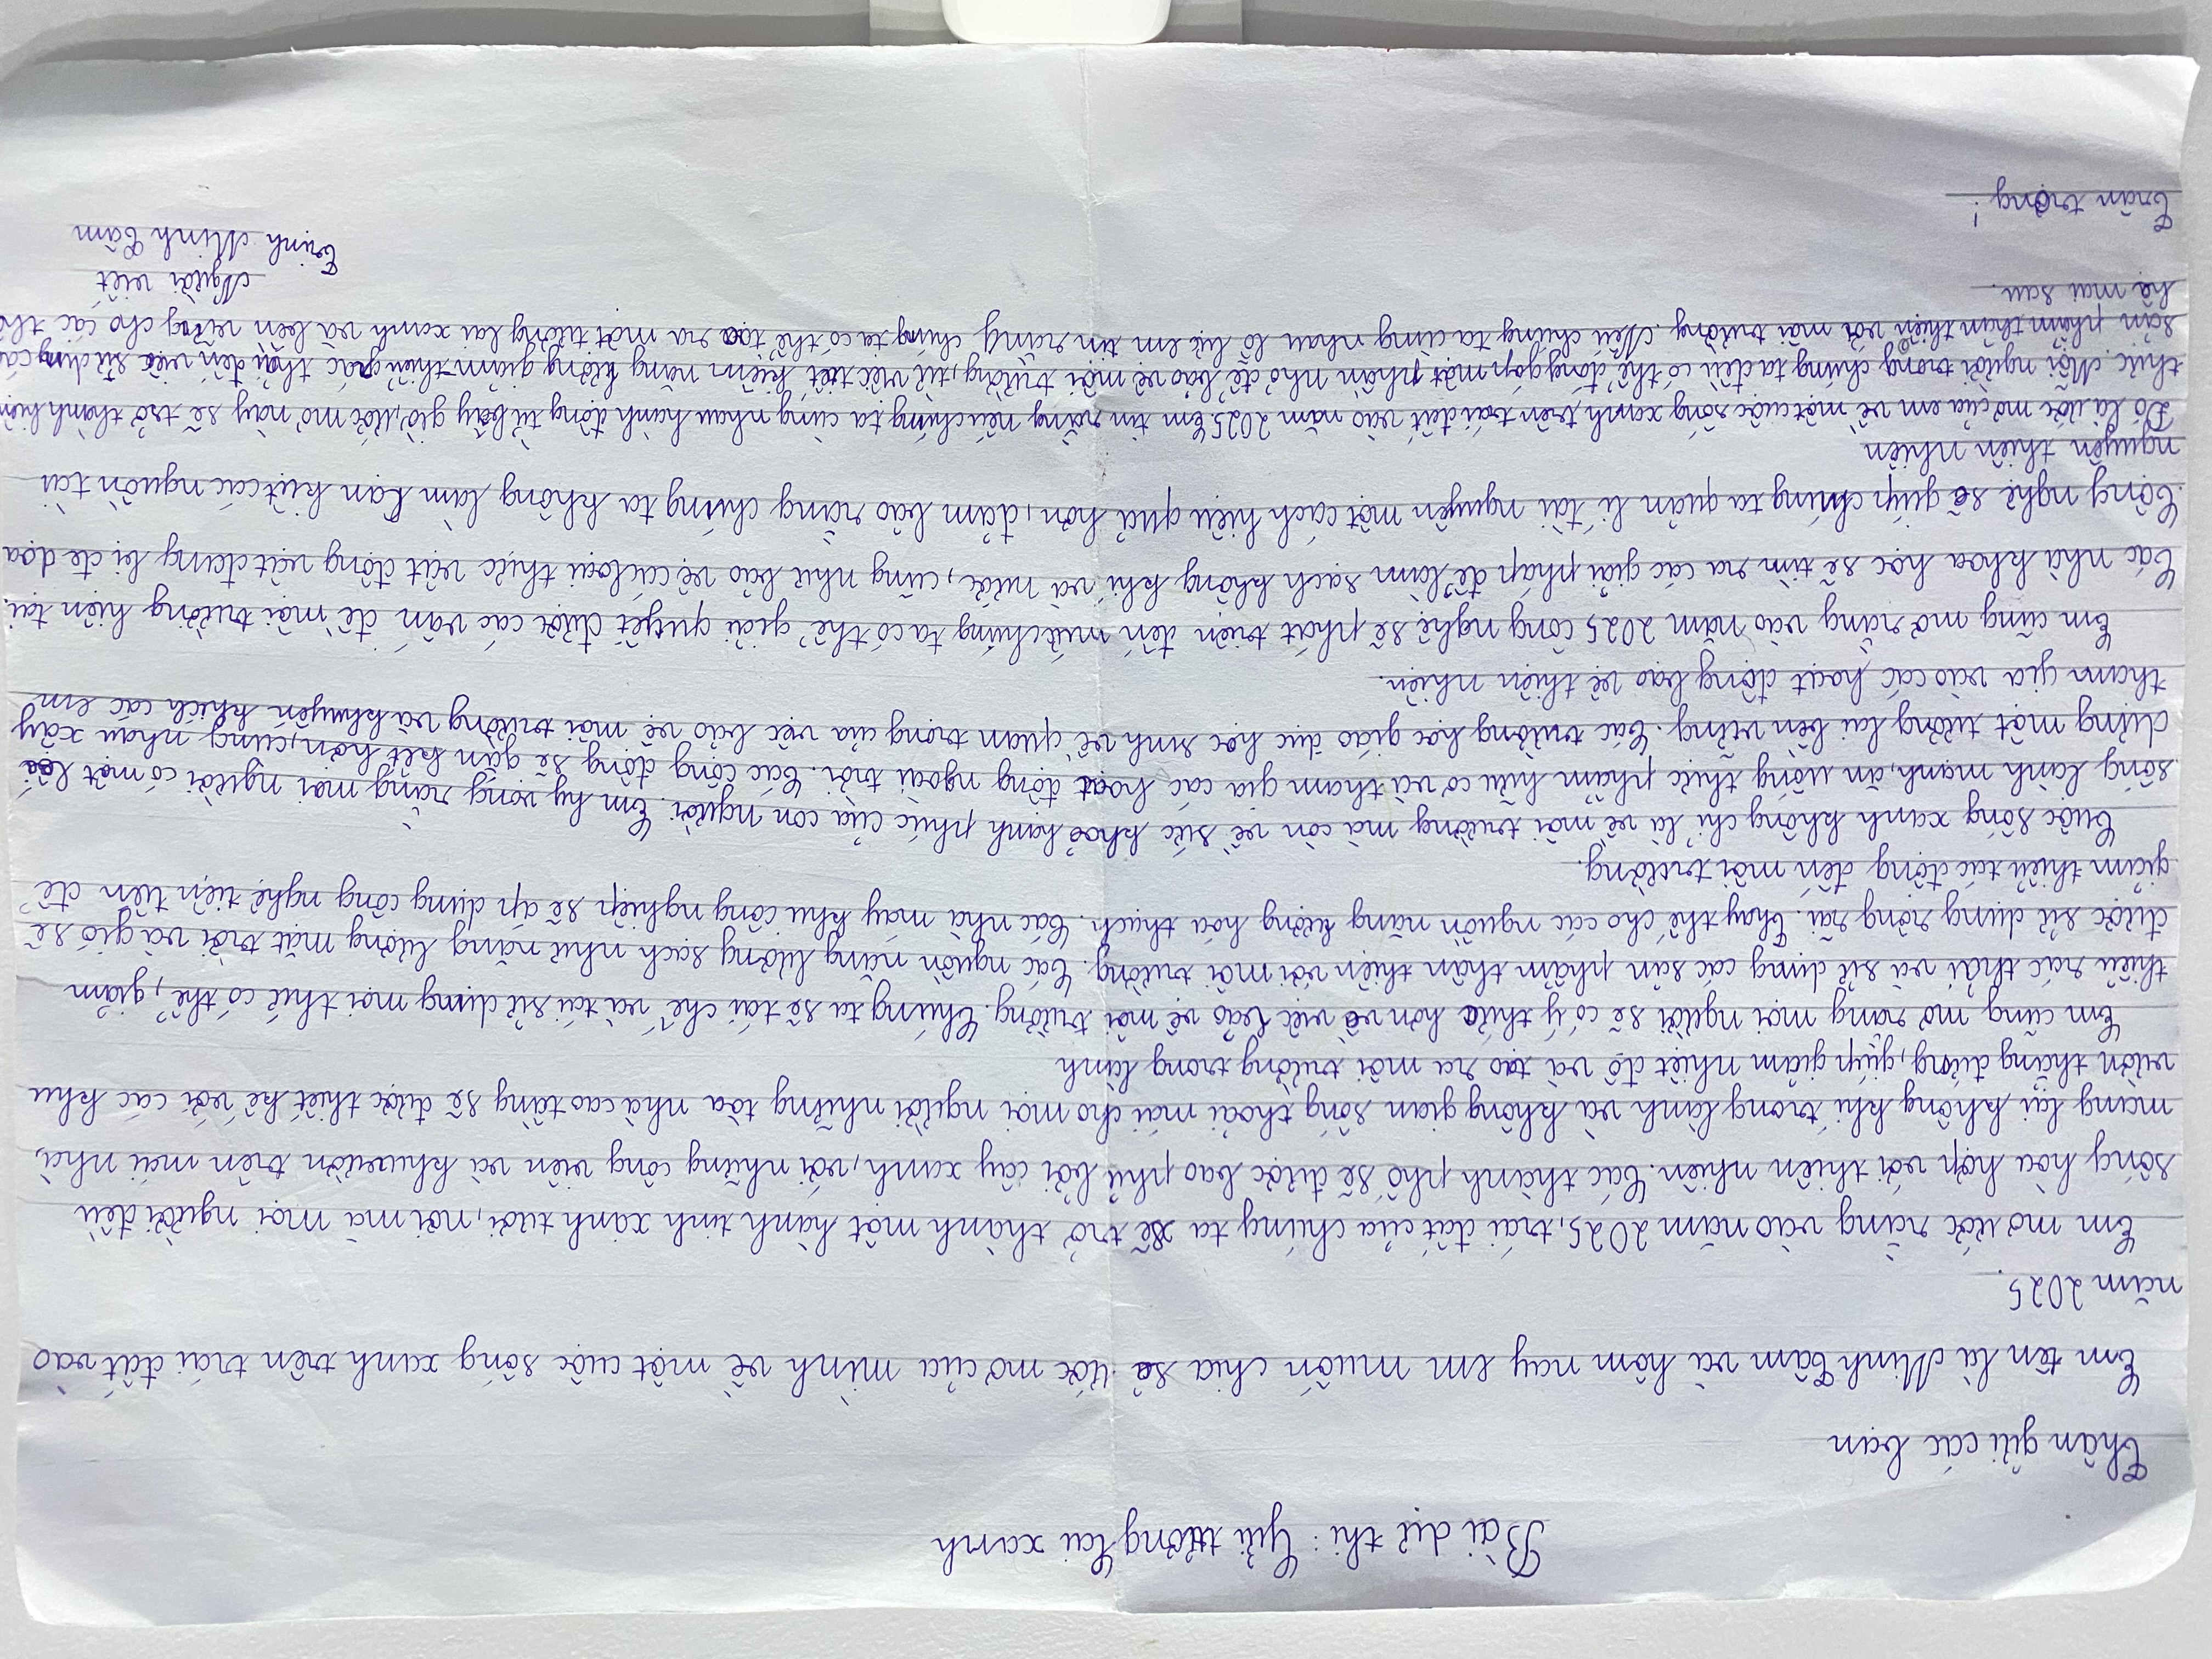 Bài dự thi: Gửi tương lai xanh
Thân gửi các bạn
Em tên là Minh Tâm và hôm nay em muốn chia sẻ ước mơ của mình về một cuộc sống xanh trên trái đất vào
năm 2025.
Em mơ ước rằng vào năm 2025, trái đất của chúng ta sẽ trở thành một hành tinh xanh tươi, nơi mà mọi người đều
sống hòa hợp với thiên nhiên. Các thành phố sẽ được bao phủ bởi cây xanh, với những công viên và khu vườn trên mái nhà,
mang lại không khí trong lành và không gian sống thoải mái cho mọi người những tòa nhà cao tầng sẽ được thiết kế với các khu
vườn thẳng đứng, giúp giảm nhiệt độ và tạo ra môi trường trong lành
Em cũng mơ rằng mọi người sẽ có ý thức hơn về việc bảo vệ môi trường. Chúng ta sẽ tái chế và tái sử dụng mọi thứ có thể, giảm
thiểu rác thải và sử dụng các sản phẩm thân thiện với môi trường. Các nguồn năng lượng sạch như năng lượng mặt trời và gió sẽ
được sử dụng rộng rãi. Thay thế cho các nguồn năng lượng hóa thạch. Các nhà máy khu công nghiệp sẽ áp dụng công nghệ tiện tiến để
giảm thiểu tác động đến môi trường.
Cuộc sống xanh không chỉ là về môi trường mà còn về sức khoẻ hạnh phúc của con người. Em hy vọng rằng mọi người có một lối
sống lành mạnh, ăn uống thực phẩm hữu cơ và tham gia các hoạt động ngoài trời. Các cộng đồng sẽ gắn kết hơn, cùng nhau xây
dựng một tương lai bền vững. Các trường học giáo dục học sinh về quan trọng của việc bảo vệ môi trường và khuyến khích các em
tham gia vào các hoạt động bảo vệ thiên nhiên.
Em cũng mơ rằng vào năm 2025 công nghệ sẽ phát triển đến mức chúng ta có thể giải quyết được các vấn đề môi trường hiện tại.
Các nhà khoa học sẽ tìm ra các giải pháp để làm sạch không khí và nước, cũng như bảo vệ các loài thực vật động vật đang bị đe dọa
Công nghệ sẽ giúp chúng ta quản lí tài nguyên một cách hiệu quả hơn, đảm bảo rằng chúng ta không làm cạn kiệt các nguồn tài
nguyên thiên nhiên
Đó là ước mơ của em về một cuộc sống xanh, trên trái đất vào năm 2025. Em tin rằng nếu chúng ta cùng nhau hành động từ bây giờ, ước mơ này sẽ trở thành hiện
thực. Mỗi người trong chúng ta đều có thể đóng góp một phần nhỏ để bảo vệ môi trường, từ việc tiết kiệm năng lượng giảm thiểu rác thải đến việc sử dụng các
sản phẩm thân thiện với môi trường. Nếu chúng ta cùng nhau lỗ lực em tin rằng chúng ta có thể tạo ra một tương lai xanh và bền vững cho các thế
hệ mai sau.
Người viết
Trịnh Minh Tâm
Trân trọng!